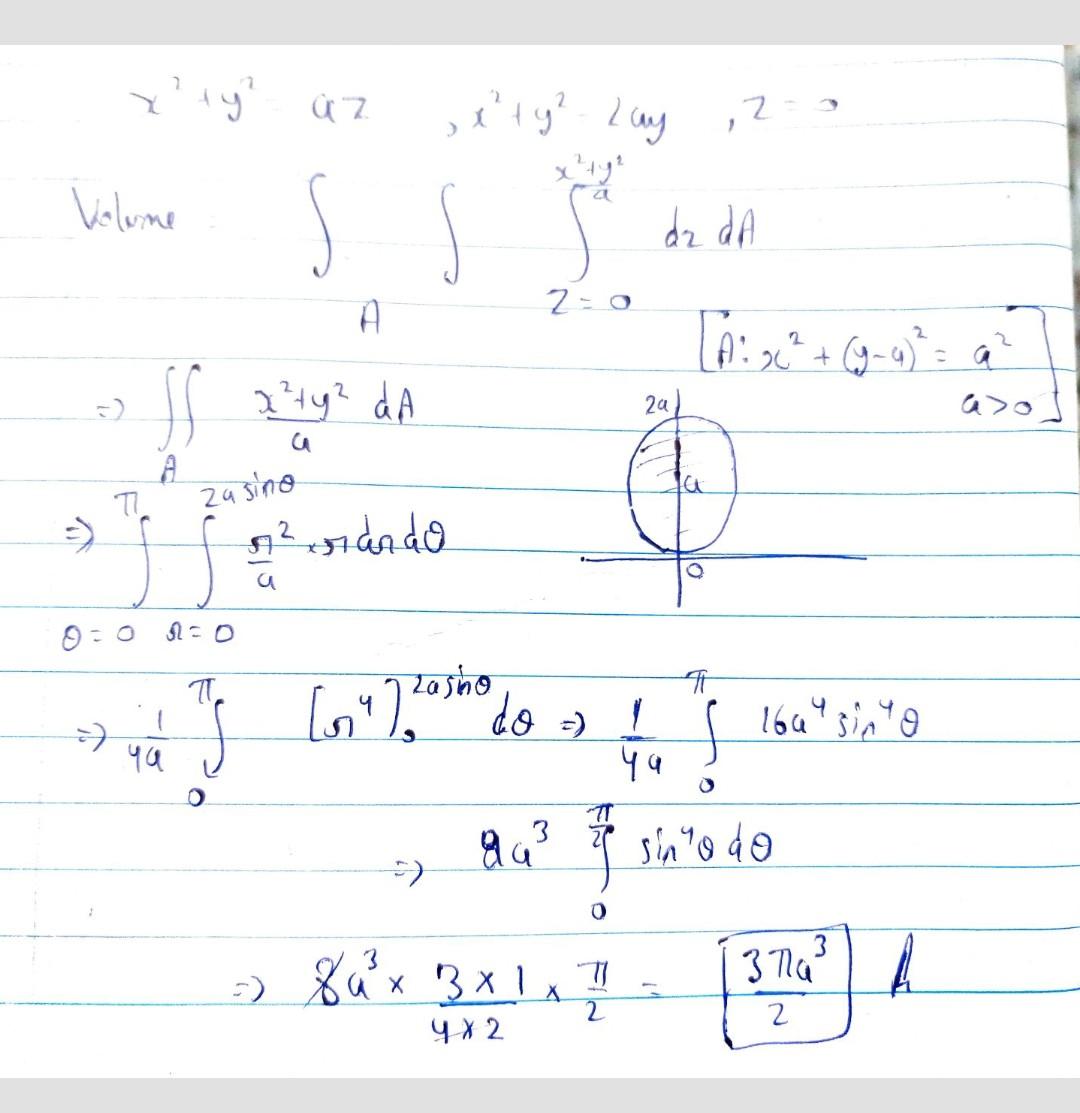 x² + y² = az , x² + y² = 2ay , z = 0
Volume = ∫ ∫_A ∫_{z=0}^{(x²+y²)/a} dz dA
[A: x² + (y-a)² = a²
a>0]
=> ∬_A (x²+y²)/a dA
2a
a
0
=> ∫_{θ=0}^{π} ∫_{r=0}^{2a sinθ} r²/a × r dr dθ
=> 1/4a ∫_0^π [r⁴]_0^{2a sinθ} dθ => 1/4a ∫_0^π 16a⁴ sin⁴θ
=> 8a³ ∫_0^{π/2} sin⁴θ dθ
=> 8a³ × (3×1)/(4×2) × π/2 = 3πa³/2